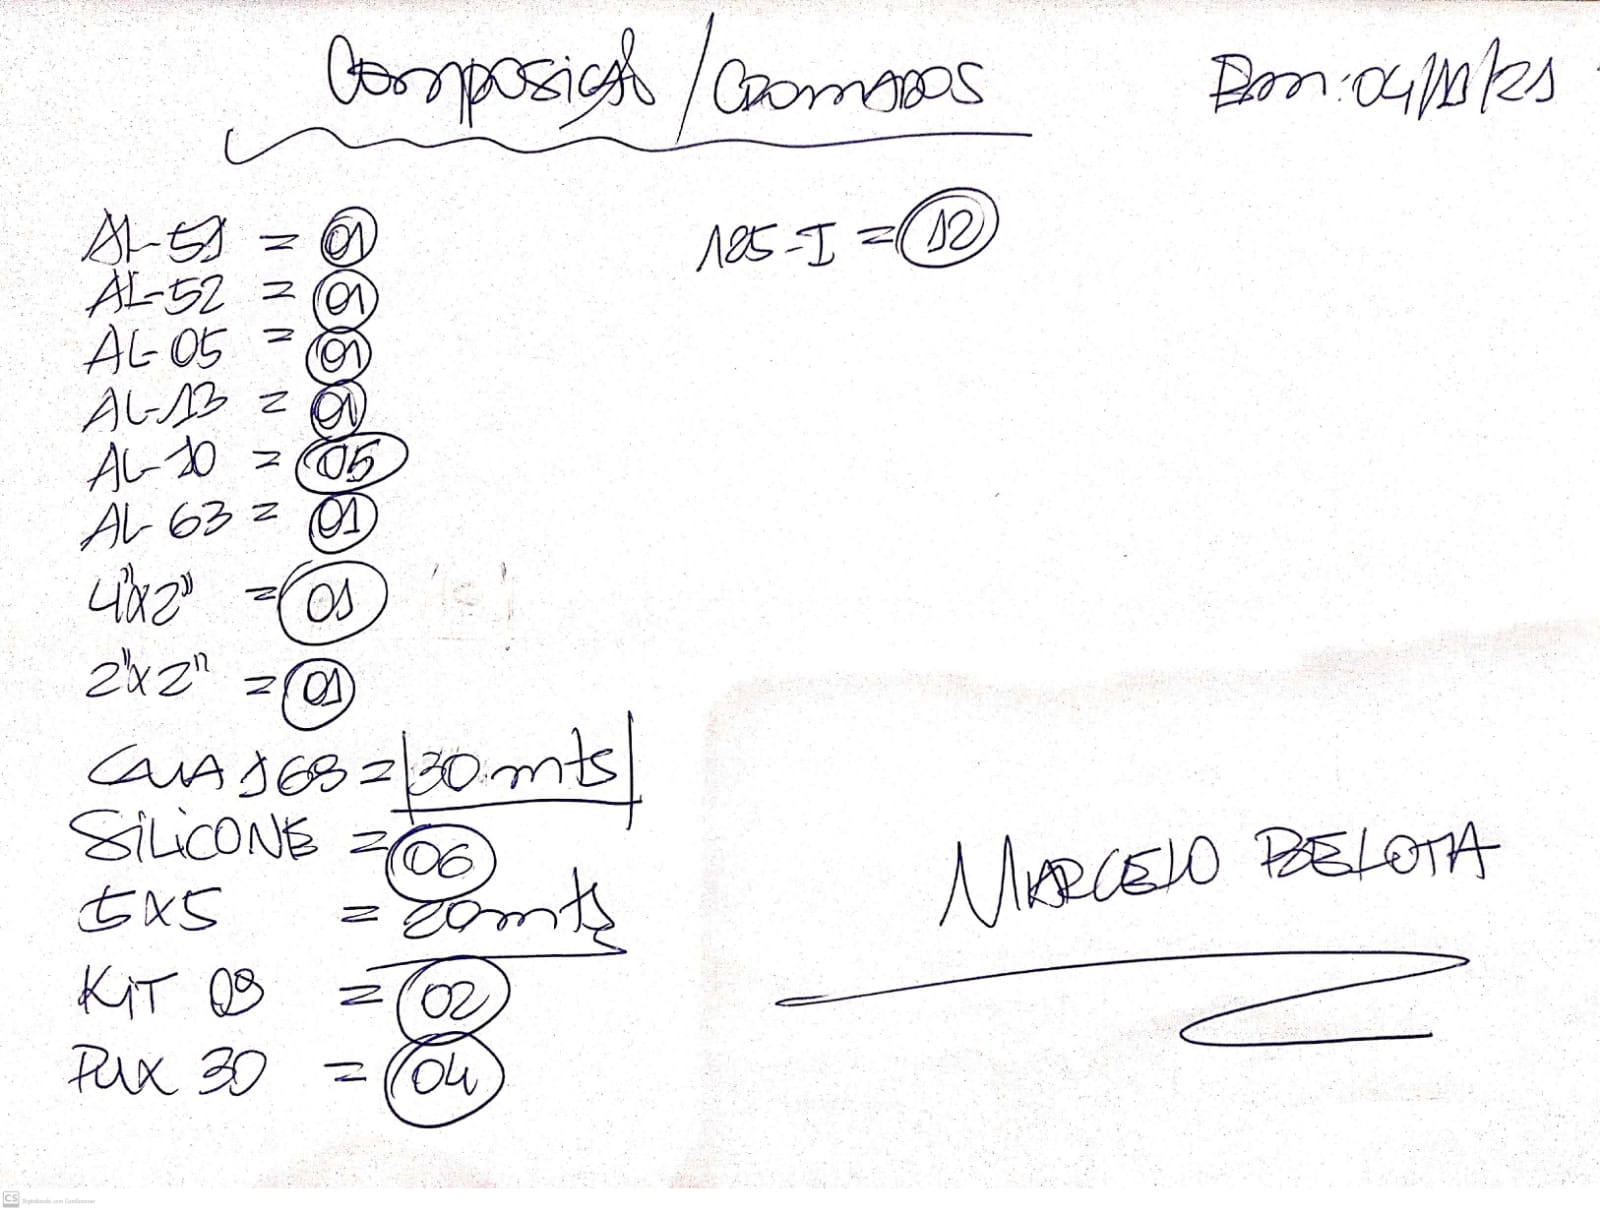 Composição / CROMADOS
Em: 04/11/21
AL-51 = 01
125-I = 12
AL-52 = 01
AL-05 = 01
AL-13 = 01
AL-10 = 05
AL-63 = 01
4"x2" = 01
2"x2" = 01
= 30 mts
SILICONE = 06
5x5 = 20mts
KIT 09 = 02
PUX 30 = 04
MARCELO BELOTA
CS Digitalizado com CamScanner